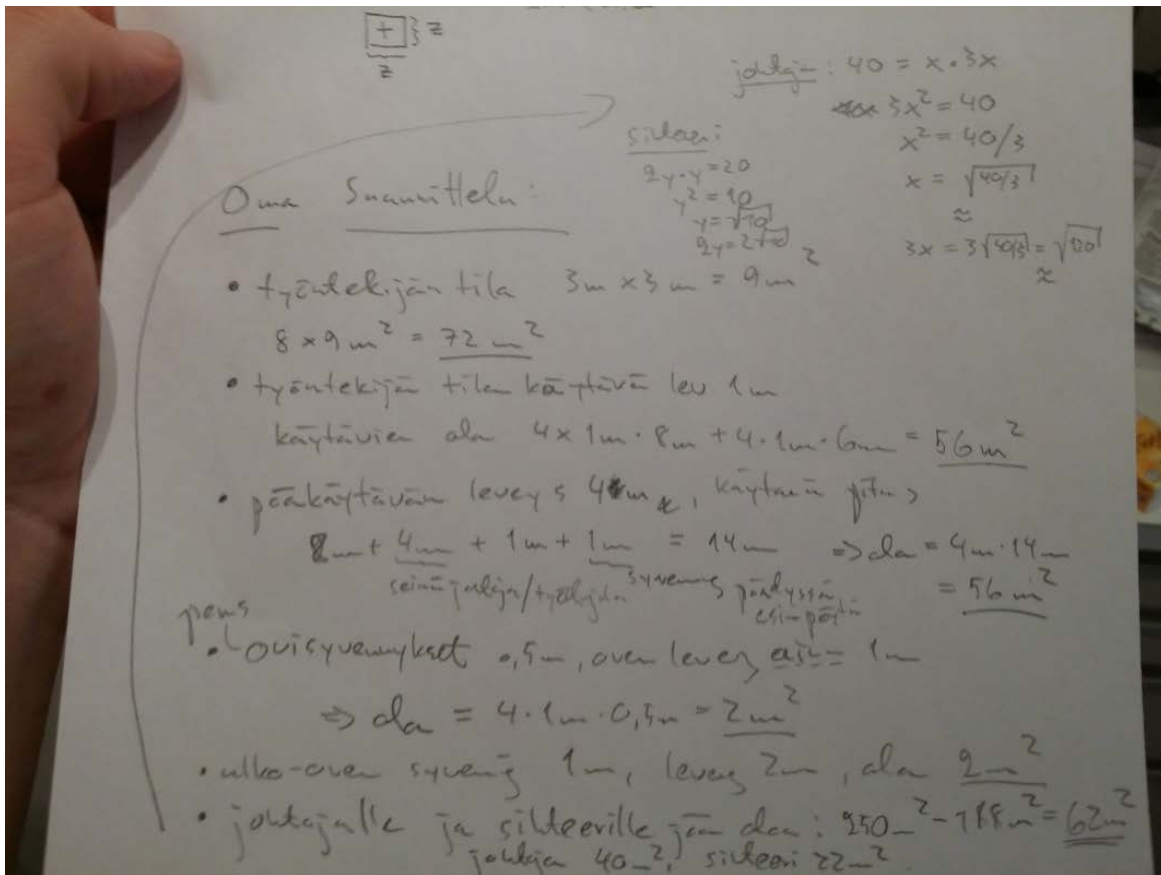 + } z
z
johtaja: 40 = x · 3x
3x² = 40
x² = 40/3
x = √40/3
≈
3x = 3√40/3 = √120
≈
sihteeri:
2y·y = 20
y² = 10
y = √10
2y = 2√10
Oma Suunnittelu:
• työntekijän tila 3m × 3m = 9m²
8 × 9m² = 72m²
• työntekijän tilan käytävä lev 1m
käytävien ala 4 × 1m · 8m + 4 · 1m · 6m = 56m²
• pääkäytävän leveys 4m, käytävän pituus
8m + 4m + 1m + 1m = 14m => ala = 4m · 14m
seinä johtaja/ syvennys päädyssä = 56m²
esim pöytä
• ovisyvennykset 0,5m, oven leveys 1m
=> ala = 4 · 1m · 0,5m = 2m²
• ulko-oven syvennys 1m, leveys 2m, ala 2m²
• johtajalle ja sihteerille jää alaa: 250m² - 188m² = 62m²
johtaja 40m², sihteeri 22m²